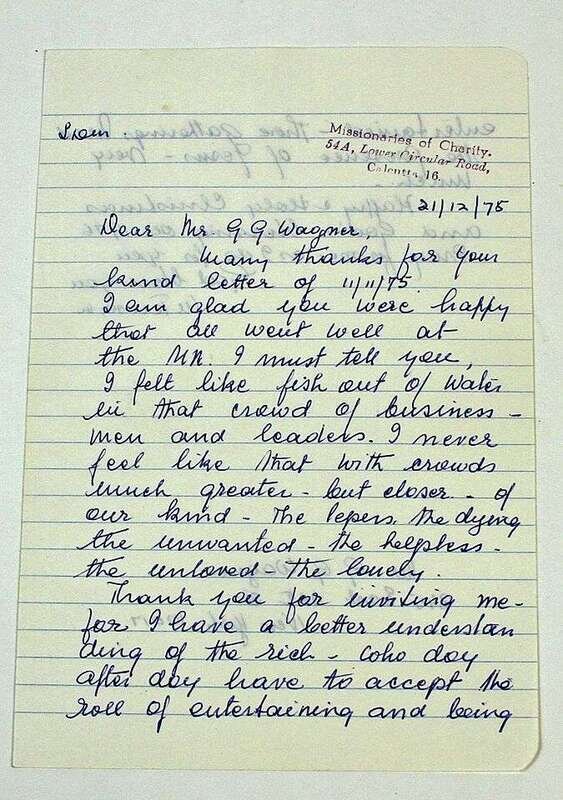 Missionaries of Charity.
54A, Lower Circular Road,
Calcutta 16.
21/12/75
Dear Mr G G. Wagner,
Many thanks for your
kind letter of 11/11/75.
I am glad you were happy
that all went well at
the UN. I must tell you,
I felt like fish out of water
in that crowd of business -
men and leaders. I never
feel like that with crowds
much greater - but closer - of
our kind - The lepers, the dying
the unwanted - the helpless -
the unloved - the lonely.
Thank you for inviting me -
for I have a better understan
ding of the rich - who day
after day have to accept the
roll of entertaining and being